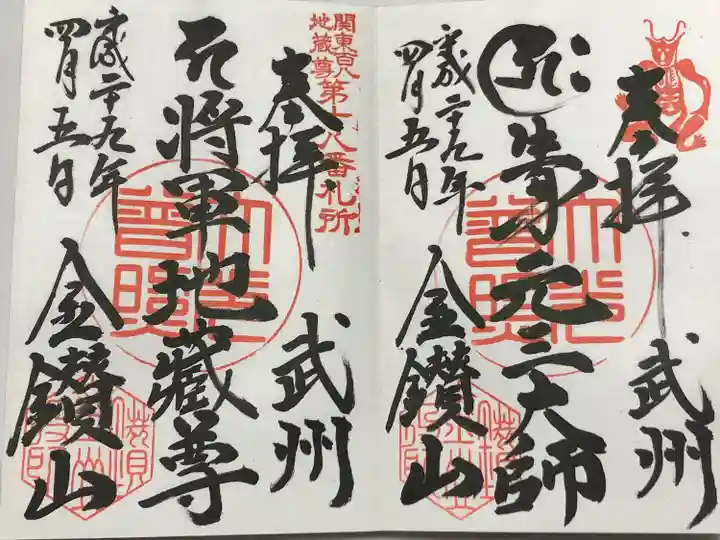 奉拝
武州
寿元三大師
平成二十九年
四月五日
金鑚山
関東百八
地蔵尊第七八番札所
奉拝
武州
将軍地蔵尊
平成二十九年
四月五日
金鑚山
大光普照